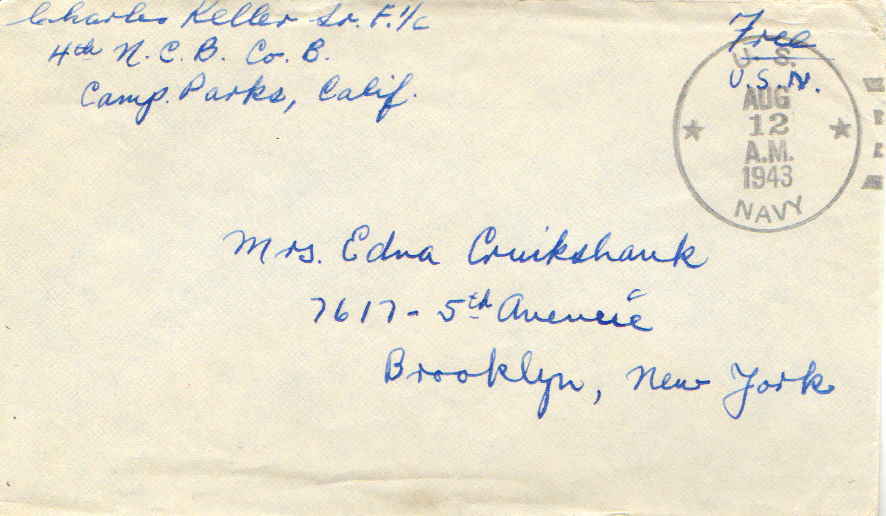 Charles Keller Sr. F.1/c
4th N.C.B. Co. B.
Camp. Parks, Calif.
Free
U.S.N.
U.S.
AUG
12
A.M.
1943
NAVY
Mrs. Edna Cruikshank
7617- 5th Avenue
Brooklyn, New York